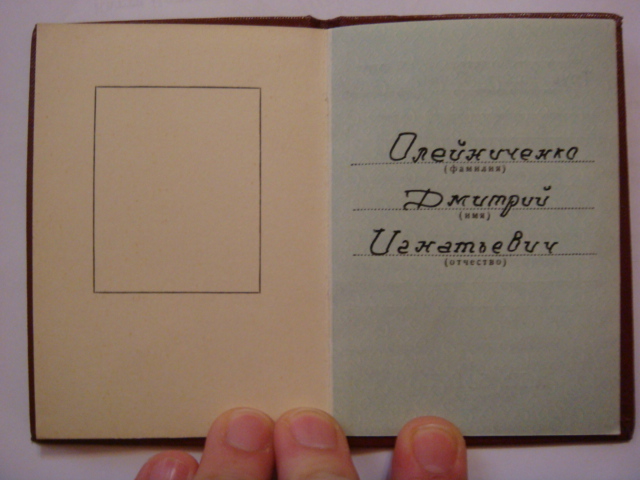 Олейниченко
(фамилия)
Дмитрий
(имя)
Игнатьевич
(отчество)